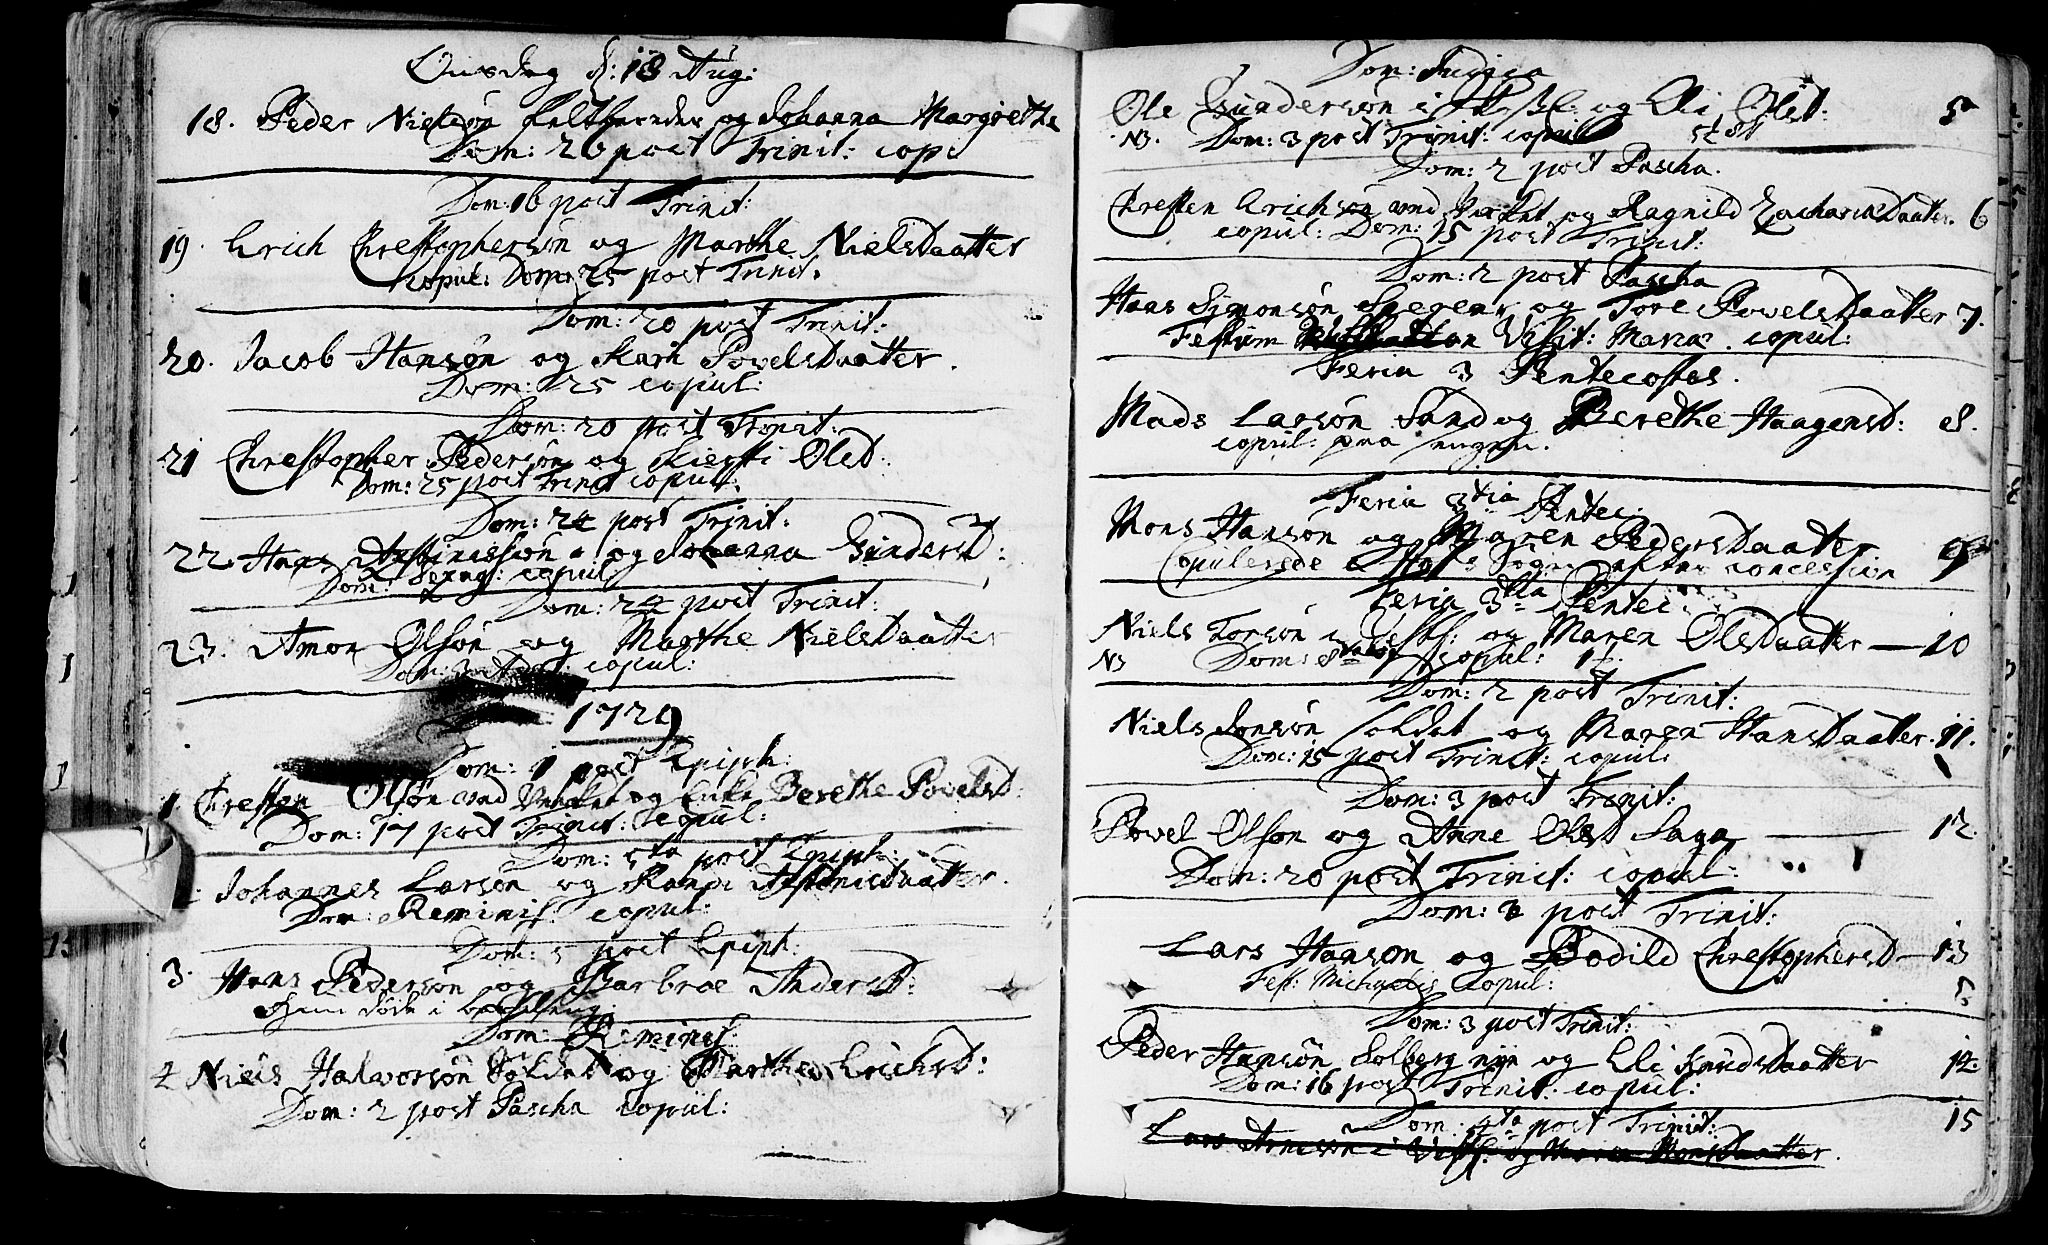 Onsdag d: 18 Aug:
18. Peder Nielsøn og Johanna Margrethe
Dom: 26 post Trinit: cop:
Dom: 16 post Trinit:
19. Erich Christophersøn og Marthe Nielsdaatter
copul: Dom: 25 post Trinit.
Dom: 20 post Trinit:
20. Jacob Hansøn og Kari Povelsdaatter.
Dom: 25 copul:
Dom: 20 post Trinit:
21 Christopher Pedersøn og Kiersti Olsd:
Dom: 25 post Trinit copul:
Dom: 24 post Trinit:
22. Hans og Johanna Gundersd:
Dom: Sexag: copul
Dom: 24 post Trinit:
23. Amon Olsøn og Marthe Nielsdaatter
Dom: 3 copul:
1729
Dom: 1 post Epiph:
1 Christen Olsøn ved og Enke Berethe Povelsd:
Dom: 17 post Trinit: copul:
Dom: 5ta post Epiph:
Johannes Larsøn og Randi
Dom: Reminis: copul:
Dom: 5 post Epiph.
3. Hans Pedersøn og Barbroe Andersd:
Dom: Reminis:
4 Niels Halvorsøn Soldat og Marthe Erichsd:
Dom: 2 post Pascha copul:
Dom: Judica
Ole Gundersøn i og Eli Olsd: 5
NB. Dom: 3 post Trinit: copul
Dom: 2 post Pascha.
Christen Erichsøn ved og Ragnild Zachariædaatter. 6
copul: Dom: 15 post Trinit:
Dom: 2 post Pascha
Hans Simonsøn og Tore Povelsdaatter 7.
Festum Visit: Mariæ. copul:
Feria 3 Pentecostes.
Mads Larsøn Sand og Berethe Haagensd: 8.
copul:
Feria 3tia Pentec:
Mons Hansøn og Maren Pedersdaatter 9
Copulerede i Sogn efter concession
Feria 3tia Pentec:
Niels Torsøn i Vestf: og Maren Olsdaatter — 10
NB Dom: 8va copul:
Dom: 2 post Trinit:
Niels Jonsøn soldat og Maren Hansdaatter. 11.
Dom: 15 post Trinit: copul:
Dom: 3 post Trinit:
Povel Olsøn og Anne Olsd Saga — 12.
Dom: 20 post Trinit: copul:
Dom: 3 post Trinit:
Lars Hansøn og Bodild Christophersd — 13
Fest: Michaelis copul:
Dom: 3 post Trinit:
Peder Hansøn Solberg og Eli Knudsdaatter 14.
Dom: 16 post Trinit: copul:
Dom: 4ta post Trinit: 15
Lars i Vestf: og Maren Monsdaatter.